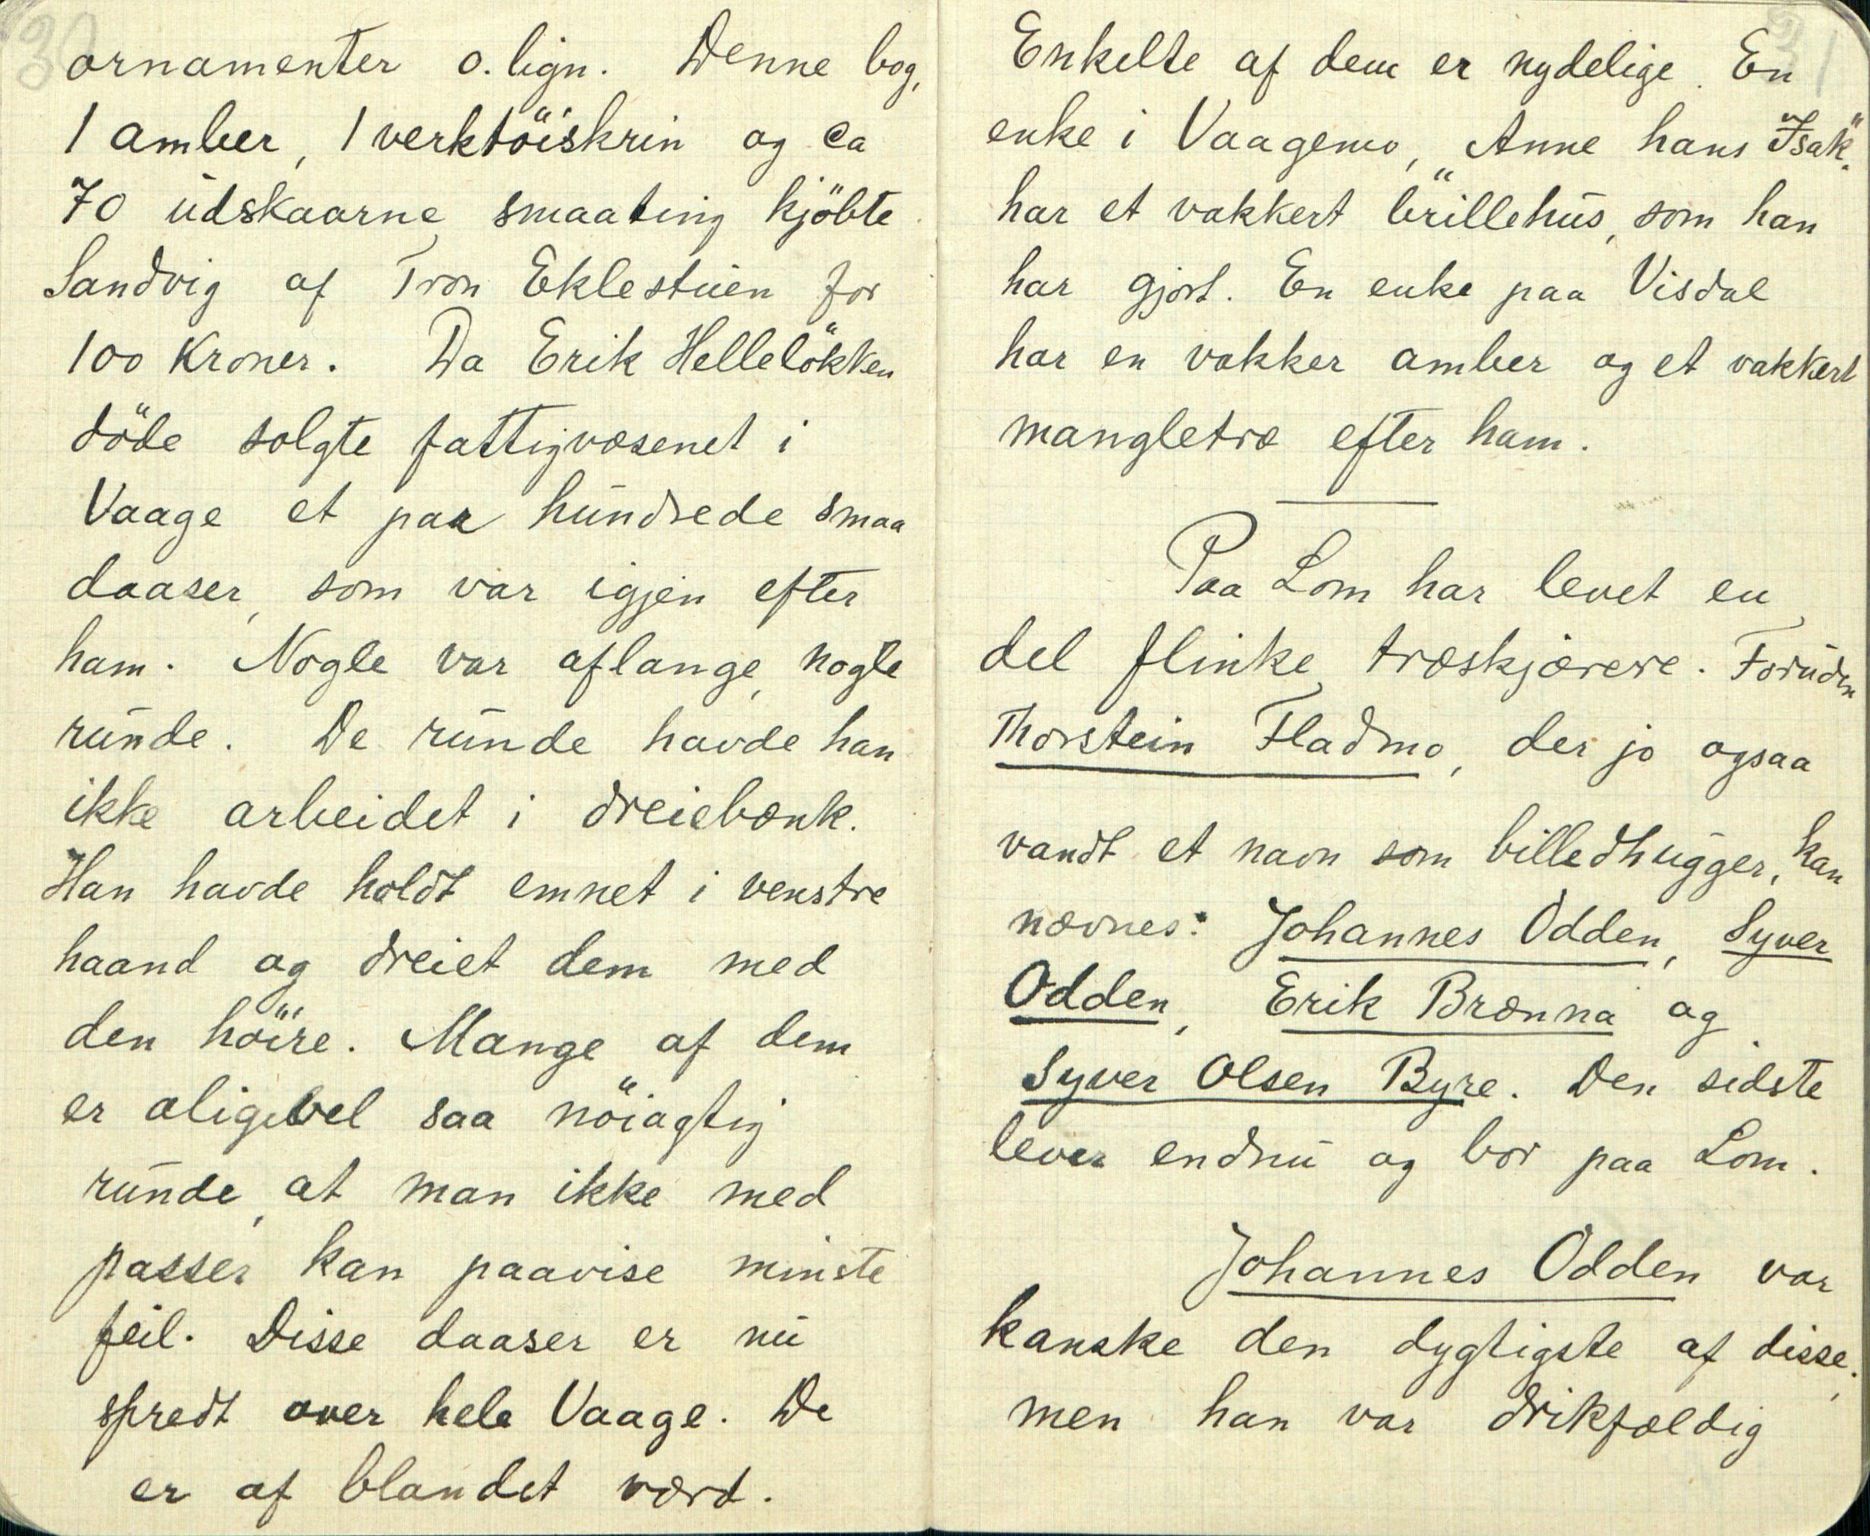 30
ornamenter o. lign. Denne bog,
1 amber, 1 verktöiskrin og ca
70 udskaarne smaating kjöbte
Sandvig af Tron Eklestuen for
100 Kroner. Da Erik Hellelökken
döde solgte fattigvæsenet i
Vaage et par hundrede smaa
daaser, som var igjen efter
ham. Nogle var aflange, nogle
runde. De runde havde han
ikke arbeidet i dreiebænk.
Han havde holdt emnet i venstre
haand og dreiet dem med
den höire. Mange af dem
er aligevel saa nöiagtig
runde, at man ikke med
passer kan paavise minste
feil. Disse daaser er nu
spredt over hele Vaage. De
er af blandet værd.
31
Enkelte af dem er nydelige. En
enke i Vaagemo, "Anne hans Isak"
har et vakkert brillehus, som han
har gjort. En enke paa Visdal
har en vakker amber og et vakkert
mangletræ efter ham.
Paa Lom har levet en
del flinke træskjærere. Foruden
Thorstein Fladmo, der jo ogsaa
vandt et navn som billedhugger, kan
nævnes: Johannes Odden, Syver
Odden, Erik Brænna og
Syver Olsen Byre. Den sidste
lever endnu og bor paa Lom.
Johannes Odden var
kanske den dygtigste af disse,
men han var drikfældig